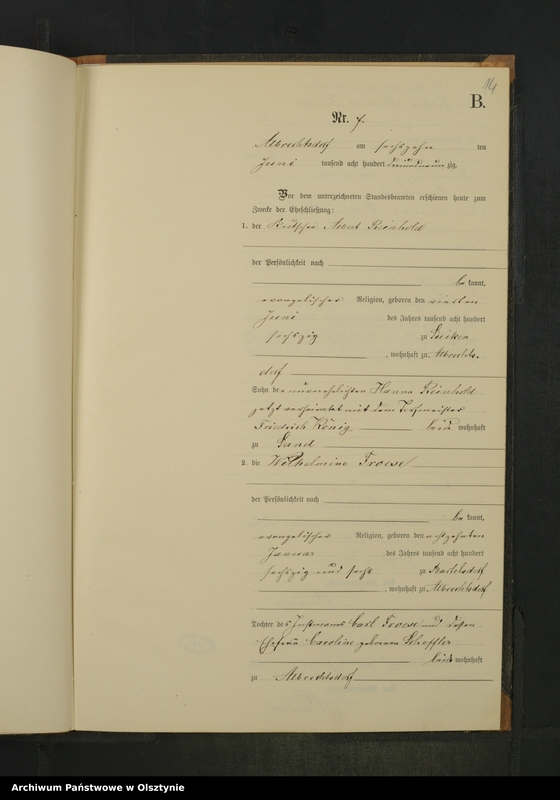 14
B.
Nr. 7.
Albrechtsdorf am sechszehn ten
Juni tausend acht hundert dreiundneunzig.
Vor dem unterzeichneten Standesbeamten erschienen heute zum
Zwecke der Eheschließung:
1. der Kutscher Albert Reinhold
der Persönlichkeit nach
be kannt,
evangelischer Religion, geboren den vierten
Juni des Jahres tausend acht hundert
sechszig zu
, wohnhaft zu Albrechts-
dorf
Sohn der unverehelichten Hanna Reinhold
jetzt verheirathet mit dem
Friedrich König beide wohnhaft
zu Sand
2. die Wilhelmine Froese
der Persönlichkeit nach
be kannt,
evangelischer Religion, geboren den achtzehnten
Januar des Jahres tausend acht hundert
sechszig und sechs zu
, wohnhaft zu Albrechtsdorf
Tochter des Instmanns Carl Froese und dessen
Ehefrau Caroline geborenen Scheffler
beide wohnhaft
zu Albrechtsdorf
Archiwum Państwowe w Olsztynie